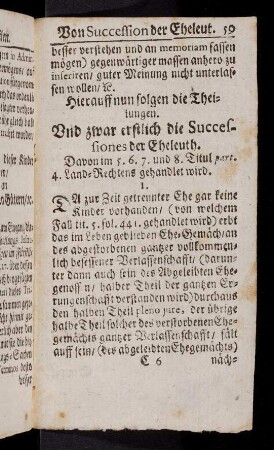 Von Succession der Eheleut. 59
besser verstehen und an memoriam fassen
mögen) gegenwärtiger massen anhero zu
inseriren/ guter Meinung nicht unterlas-
sen wollen/ &c.
Hierauff nun folgen die Thei-
lungen.
Und zwar erstlich die Succes-
siones der Eheleuth.
Davon im 5. 6. 7. und 8. Titul part.
4. Land-Rechtens gehandlet wird.
1.
DA zur Zeit getrennter Ehe gar keine
Kinder vorhanden/ (von welchem
Fall tit. 5. fol. 441. gehandlet wird) erbt
das im Leben geblieben Ehe-Gemäch/ an
des abgestorbenen gantzer vollkommen-
lich besessener Verlassenschafft/ (darun-
ter dann auch sein des Abgeleibten Ehe-
genossn/ halber Theil der gantzen Er-
rungenschafft verstanden wird) durchaus
den halben Theil pleno jure, der übrige
halbe Theil solcher des verstorbenen Ehe-
gemächts gantzer Verlassenschafft/ fält
auff sein/ (des abgeleibten Ehegemächts)
C 6 näch-